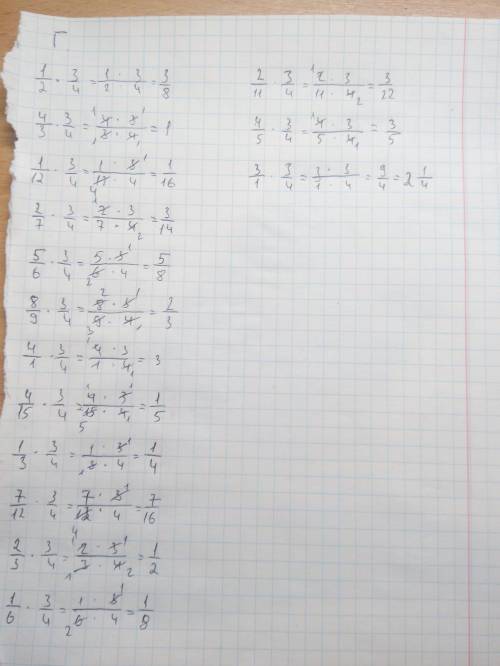 Г
1/2 · 3/4 = 1 · 3/2 · 4 = 3/8
4/3 · 3/4 = 4 · 3/3 · 4 = 1
1/12 · 3/4 = 1 · 3/12 · 4 = 1/16
2/7 · 3/4 = 2 · 3/7 · 4 = 3/14
5/6 · 3/4 = 5 · 3/6 · 4 = 5/8
8/9 · 3/4 = 8 · 3/9 · 4 = 2/3
4/1 · 3/4 = 4 · 3/1 · 4 = 3
4/15 · 3/4 = 4 · 3/15 · 4 = 1/5
1/3 · 3/4 = 1 · 3/3 · 4 = 1/4
7/12 · 3/4 = 7 · 3/12 · 4 = 7/16
2/3 · 3/4 = 2 · 3/3 · 4 = 1/2
1/6 · 3/4 = 1 · 3/6 · 4 = 1/8
2/11 · 3/4 = 2 · 3/11 · 4 = 3/22
4/5 · 3/4 = 4 · 3/5 · 4 = 3/5
3/1 · 3/4 = 3 · 3/1 · 4 = 9/4 = 2 1/4